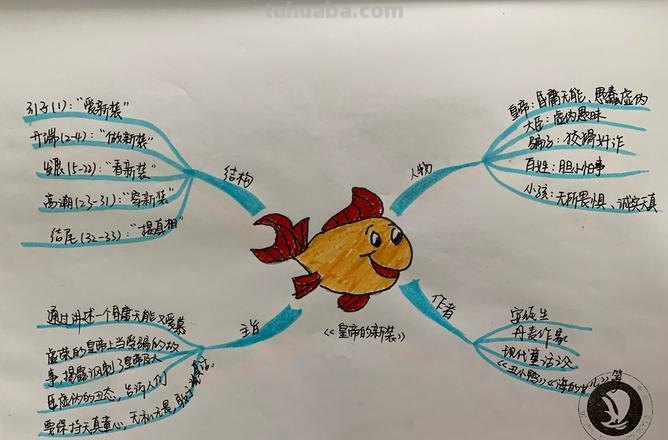 tuhuaba.com
结构
引子(1)："爱新装"
开端(2-4)："做新装"
发展(5-22)："看新装"
高潮(23-31)："穿新装"
结尾(32-33)："揭真相"
人物
皇帝：昏庸无能、愚蠢虚伪
大臣：虚伪愚昧
骗子：狡猾奸诈
百姓：胆小怕事
小孩：无所畏惧、诚实天真
主旨
通过讲述一个昏庸无能又爱慕
虚荣的皇帝上当受骗的故
事，揭露讽刺了皇帝及大
臣虚伪的丑态，告诉人们
要保持天真童心，无私无畏，敢于说真话。
作者
安徒生
丹麦作家
现代童话
《丑小鸭》《海的女儿》等
《皇帝的新装》